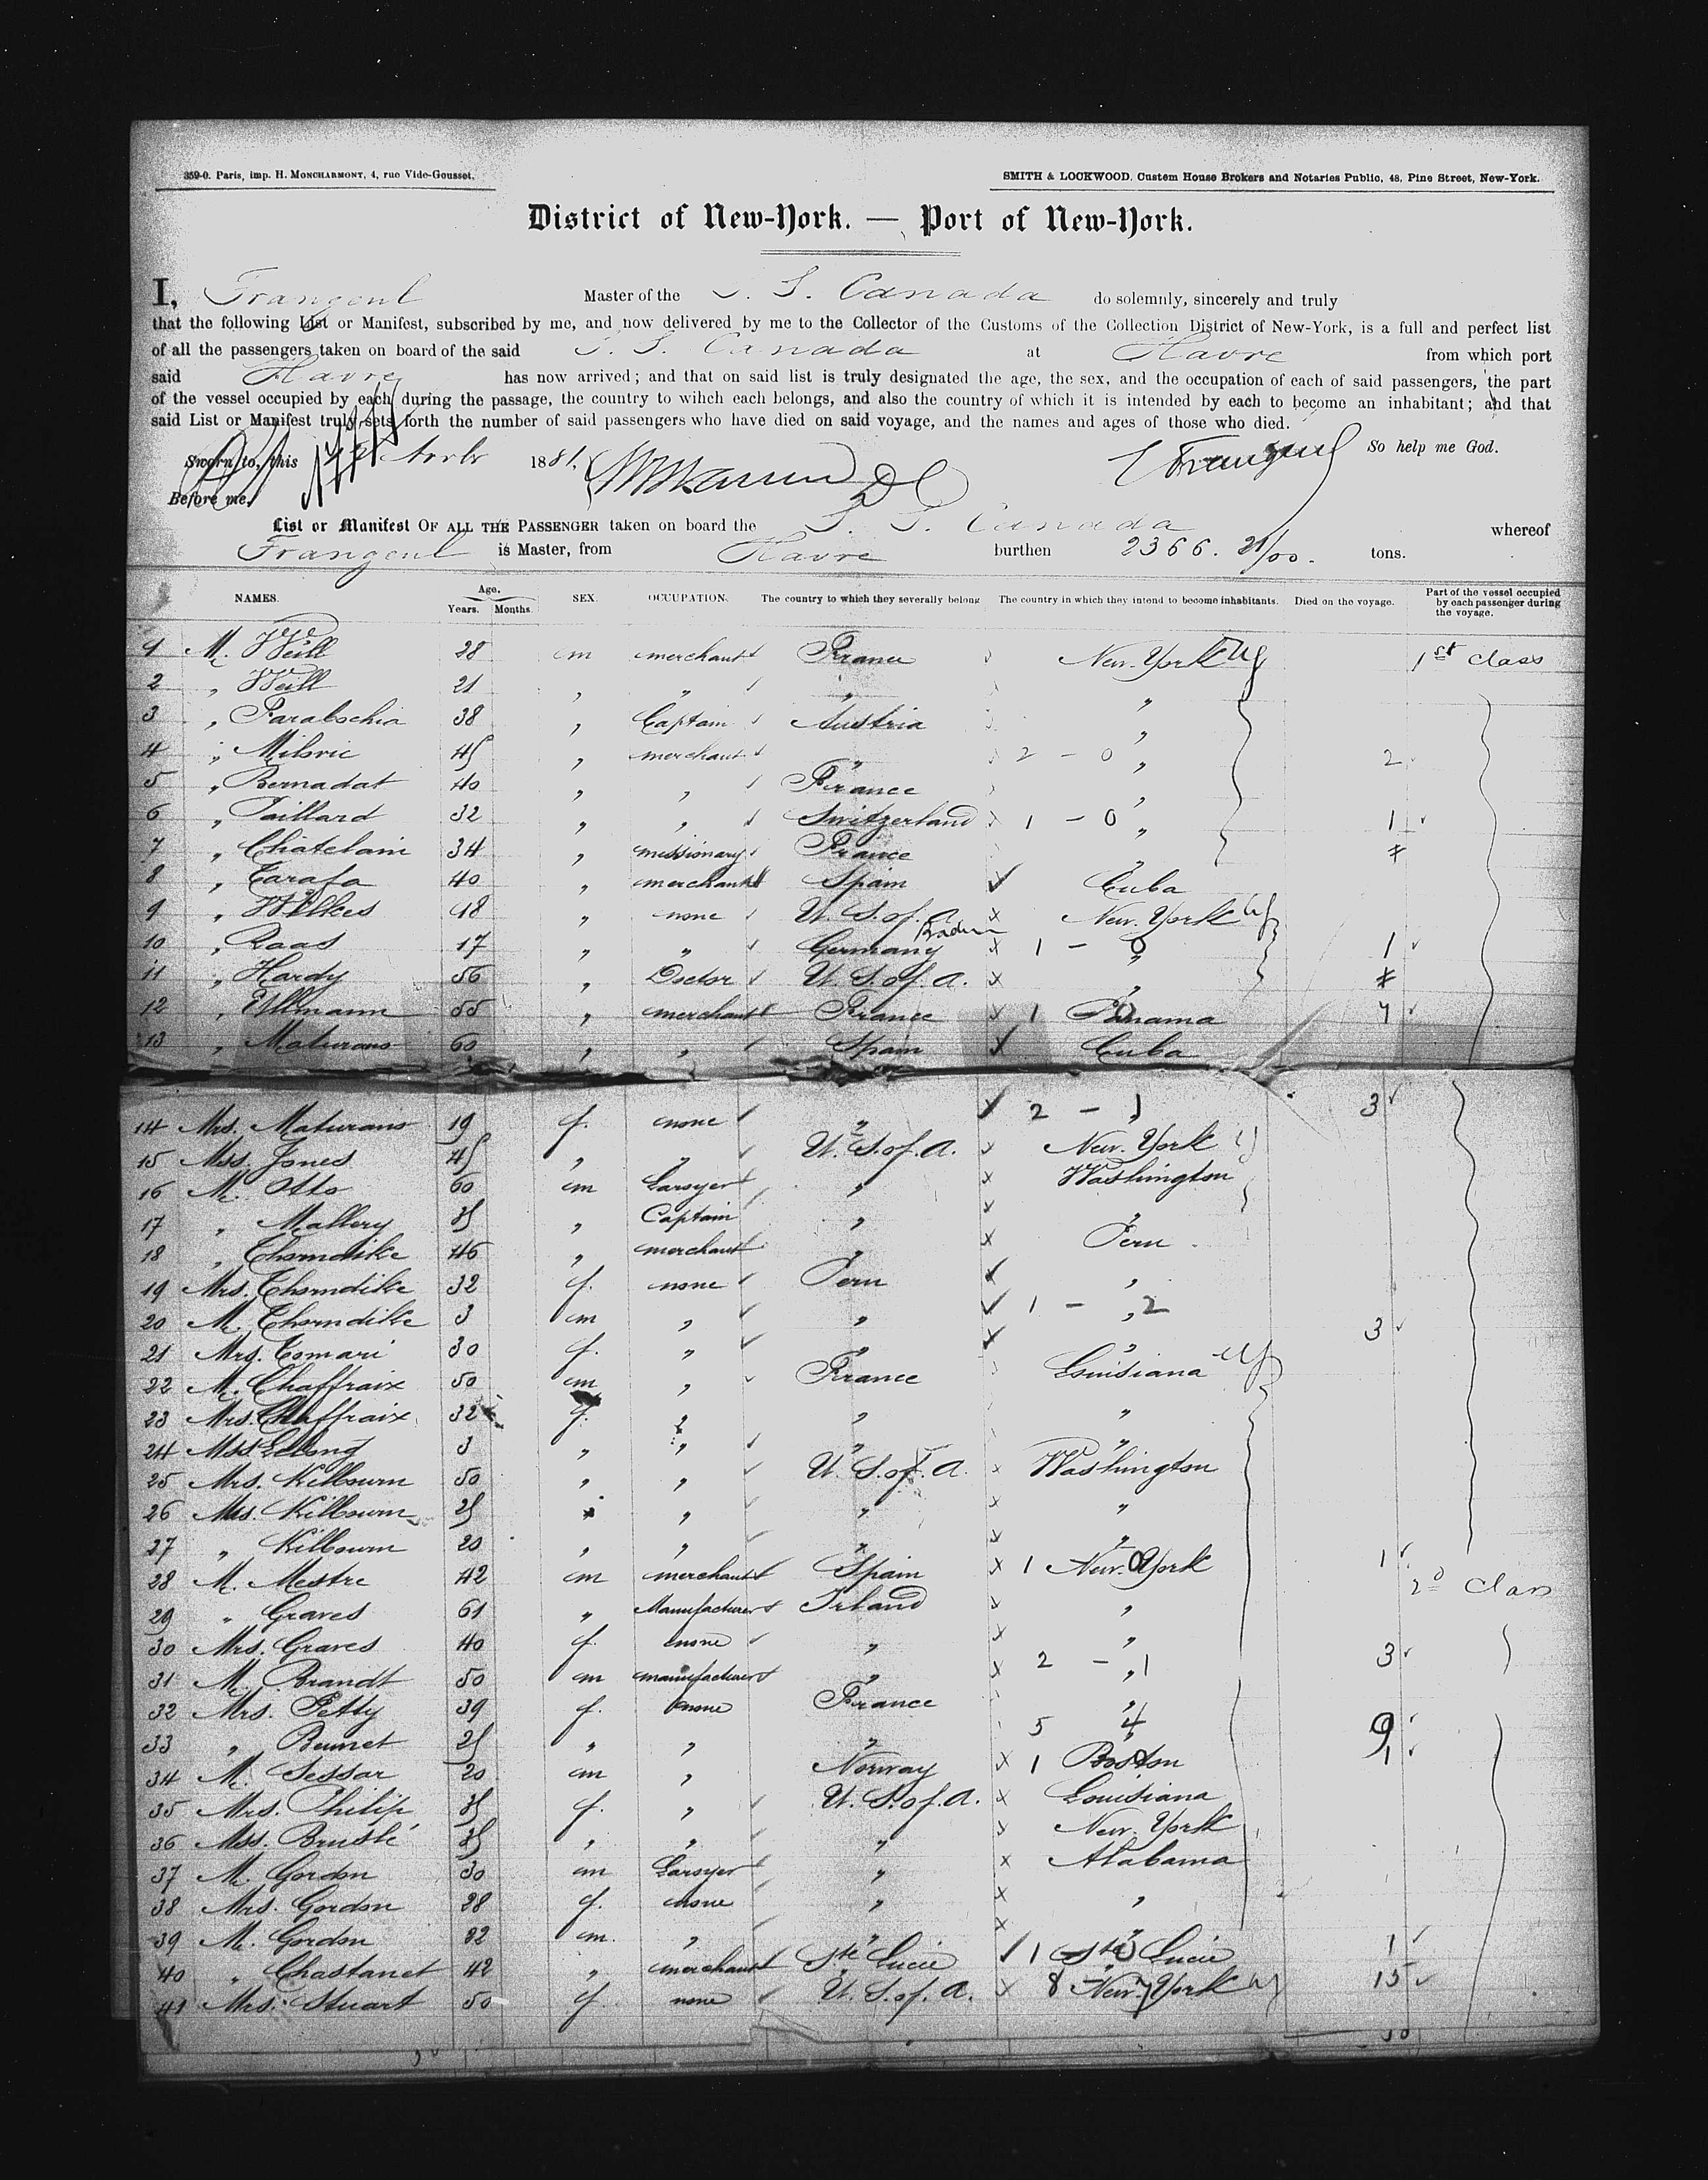 359-0. Paris, imp. H. MONCHARMONT, 4, rue Vide-Gousset.
SMITH & LOCKWOOD. Custom House Brokers and Notaries Public, 48, Pine Street, New-York.
District of New-York. — Port of New-York.
I, Frangeul Master of the S. S. Canada do solemnly, sincerely and truly
that the following List or Manifest, subscribed by me, and now delivered by me to the Collector of the Customs of the Collection District of New-York, is a full and perfect list
of all the passengers taken on board of the said S. S. Canada at Havre from which port
said Havre has now arrived; and that on said list is truly designated the age, the sex, and the occupation of each of said passengers, the part
of the vessel occupied by each during the passage, the country to wihch each belongs, and also the country of which it is intended by each to become an inhabitant; and that
said List or Manifest truly sets forth the number of said passengers who have died on said voyage, and the names and ages of those who died.
Sworn to, this 1881. Frangeul So help me God.
Before me.
List or Manifest OF ALL THE PASSENGER taken on board the S. S. Canada whereof
Frangeul is Master, from Havre burthen 2366. 21/00. tons.
NAMES. Age. Years. Months. SEX. OCCUPATION. The country to which they severally belong The country in which they intend to become inhabitants. Died on the voyage. Part of the vessel occupied by each passenger during the voyage.
1 M. Weill 28 m merchant France New-York 1st class
2 " Weill 21 " " " "
3 " Parabschia 38 " Captain Austria "
4 " Milovic 45 " merchant " 2 - 0 " 2
5 " Bernadat 40 " " France "
6 " Paillard 32 " " Switzerland 1 - 0 " 1
7 " Chatelain 34 " missionary France "
8 " Tarafa 40 " merchant Spain Cuba
9 " Wilkes 48 " none U. S. of. A. New-York
10 " Raas 17 " " Germany Baden 1 - 0 " 1
11 " Hardy 56 " Doctor U. S. of. A. "
12 " Ullmann 55 " merchant France 1 Panama
13 " Maturans 60 " " Spain Cuba
14 Mrs. Maturans 19 f. none " 2 - 1 " 3
15 Mss. Jones 45 " " U. S. of. A. New-York
16 M. Otto 60 m Lawyer " Washington
17 " Mallery 35 " Captain " "
18 " Thorndike 46 " merchant " Peru
19 Mrs. Thorndike 32 f. none Peru "
20 M. Thorndike 3 m " " 1 - 2 "
21 Mrs. Tomari 30 f. " " " 3
22 M. Chaffraix 50 m " France Louisiana
23 Mrs. Chaffraix 32 f. " " "
24 Mss 3 " " " "
25 Mrs. Kilbourn 50 " " U. S. of. A. Washington
26 Mss. Kilbourn 25 " " " "
27 " Kilbourn 20 " " " "
28 M. Mestre 42 m merchant Spain 1 New-York 1
2d class
29 " Graves 61 " Manufacturer Irland "
30 Mrs. Graves 40 f. none " "
31 M. Brandt 50 m manufacturer " 2 - 1 " 3
32 Mrs. Petty 39 f. none France "
33 " Brunet 25 " " " 5 4 " 9
34 M. Sessar 20 m " Norway 1 Boston 1
35 Mrs. Philip 35 f. " U. S. of. A. Louisiana
36 Mss. Bruslé 35 " " " New-York
37 M. Gordon 30 m Lawyer " Alabama
38 Mrs. Gordon 28 f. none " "
39 M. Gordon 22 m. " " "
40 " Chastanet 42 " merchant Ste Lucie 1 Ste Lucie 1
41 Mrs. Stuart 50 f. none U. S. of. A. 8 New-York 15